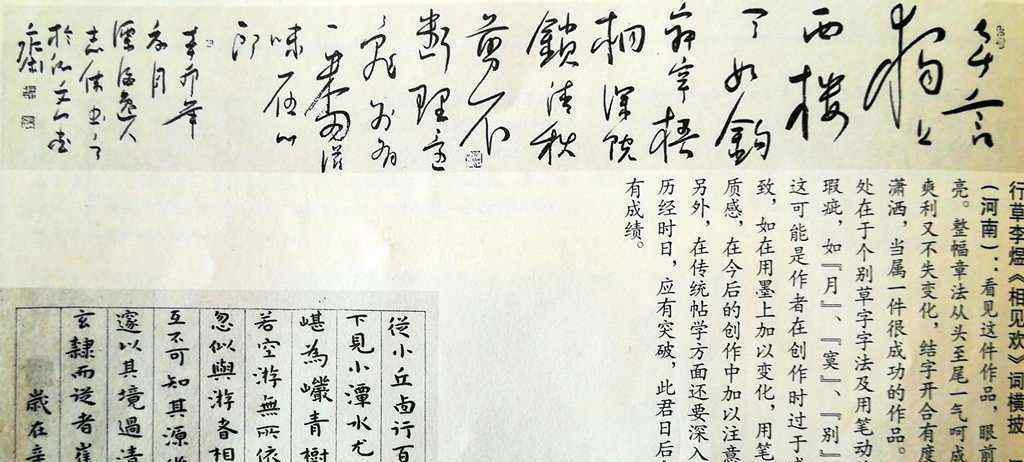 無言
獨上
西樓
月如鉤
寂寞梧
桐深院
鎖清秋
剪不
斷理還
亂別有
一番滋
味在心
頭
行草李煜《相见欢》词横披
（河南）：看见这件作品，眼前
亮。整幅章法从头至尾一气呵成
爽利又不失变化，结字开合有度
潇洒，当属一件很成功的作品。
处在于个别草字字法及用笔动
瑕疵，如『月』、『寞』、『别』
这可能是作者在创作时过于
致，如在用墨上加以变化，用笔
质感，在今后的创作中加以注意
另外，在传统帖学方面还要深入
历经时日，应有突破，此君日后
有成绩。
從小丘卣行百
下見小潭水尤
嵁為巖青樹
若空游無所依
忽似與游者相
互不可知其源
邃以其境過清
玄隸而從者崔
歲在